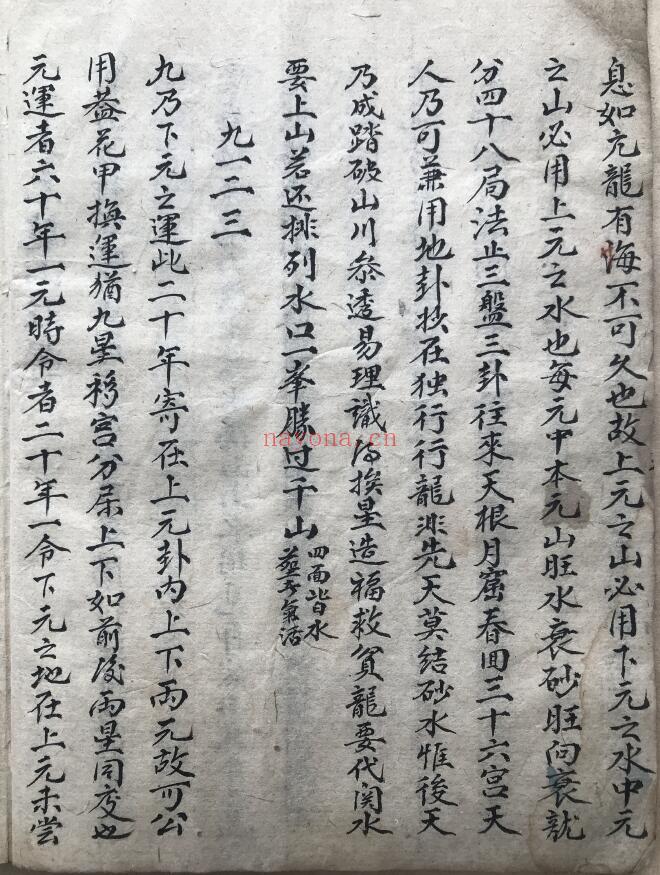 息如亢龍有悔不可久也故上元之山必用下元之水中元
之山必用上元之水也每元中本元山旺水衰砂旺向衰就
分四十八局法止三盤三卦往來天根月窟春回三十六宮天
人乃可兼用地卦抄在独行行龍非先天莫結砂水惟後天
乃成踏破山川參透易理識得挨星造福救貧龍要代関水
要上山若还排列水口一峯勝过千山
四面皆水
葢者氣活
九一二三
九乃下元之運此二十年寄在上元卦内上下兩元故可公
用葢花甲換運猶九星移宮分屬上下如前後兩星同度也
元運者六十年一元時令者二十年一令下元之地在上元未嘗
nayona.cn